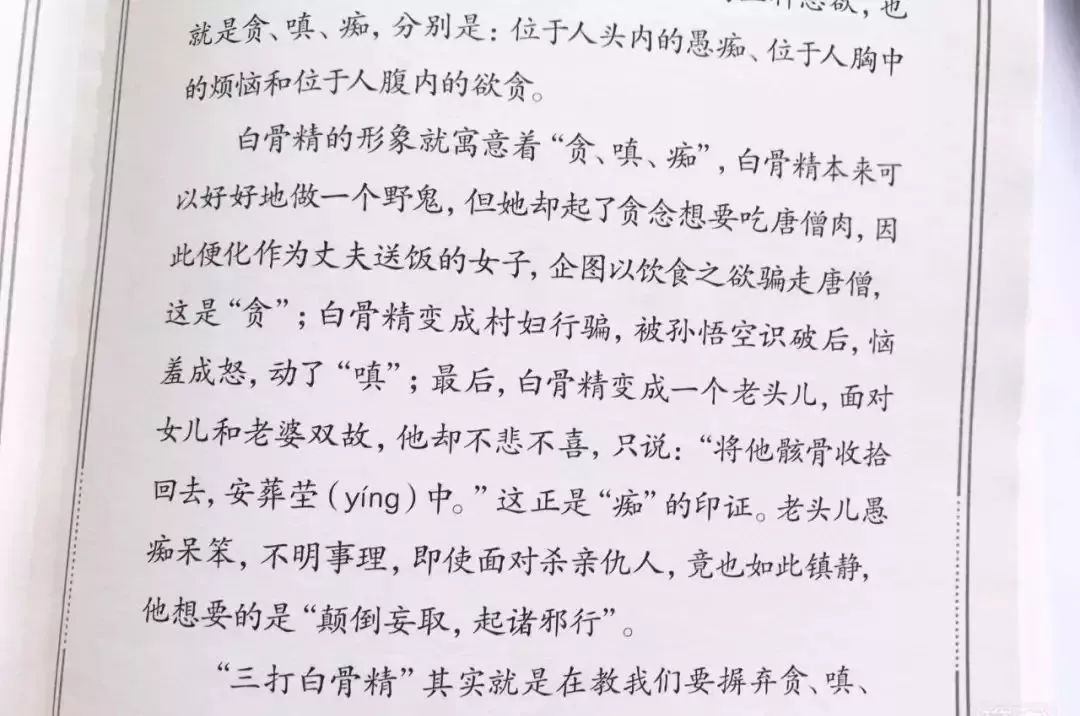 欲，也
就是贪、嗔、痴，分别是：位于人头内的愚痴、位于人胸中
的烦恼和位于人腹内的欲贪。
白骨精的形象就寓意着“贪、嗔、痴”，白骨精本来可
以好好地做一个野鬼，但她却起了贪念想要吃唐僧肉，因
此便化作为丈夫送饭的女子，企图以饮食之欲骗走唐僧，
这是“贪”；白骨精变成村妇行骗，被孙悟空识破后，恼
羞成怒，动了“嗔”；最后，白骨精变成一个老头儿，面对
女儿和老婆双故，他却不悲不喜，只说：“将他骸骨收拾
回去，安葬茔（yíng）中。”这正是“痴”的印证。老头儿愚
痴呆笨，不明事理，即使面对杀亲仇人，竟也如此镇静，
他想要的是“颠倒妄取，起诸邪行”。
“三打白骨精”其实就是在教我们要摒弃贪、嗔、